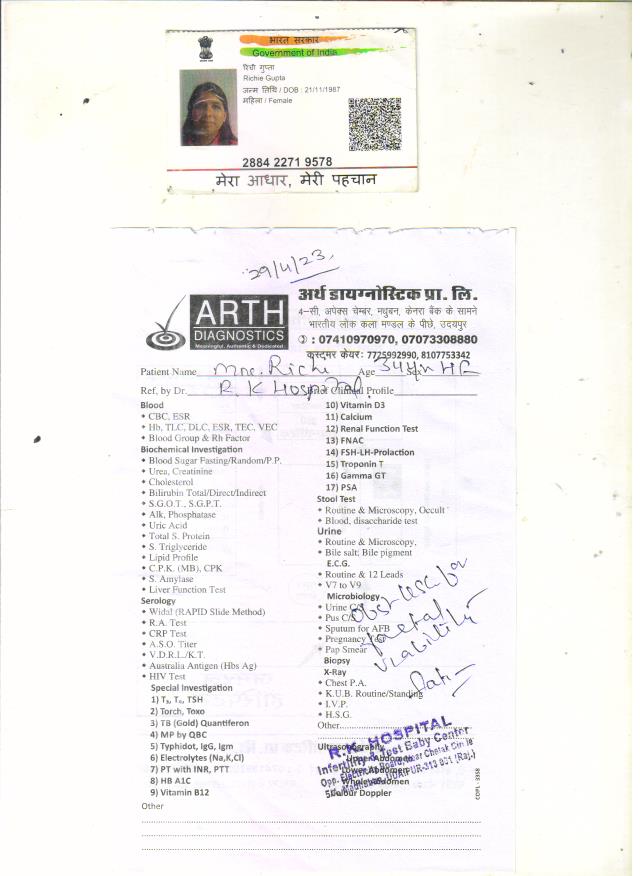 भारत सरकार
Government of India
रिची गुप्ता
Richie Gupta
जन्म तिथि / DOB : 21/11/1987
महिला / Female
2884 2271 9578
मेरा आधार, मेरी पहचान
29/4/23
ARTH
DIAGNOSTICS
Meaningful, Authentic & Dedicated.
अर्थ डायग्नोस्टिक प्रा. लि.
4-सी, अपेक्स चेम्बर, मधुबन, केनरा बैंक के सामने
भारतीय लोक कला मण्डल के पीछे, उदयपुर
: 07410970970, 07073308880
कस्टमर केयर: 7725992990, 8107753342
Patient Name Mrs. Richi Age 34 Sex
Ref, by Dr. R. K Hospital Brief Clinical Profile
Blood
CBC, ESR
Hb, TLC, DLC, ESR, TEC, VEC
Blood Group & Rh Factor
Biochemical Investigation
Blood Sugar Fasting/Random/P.P.
Urea, Creatinine
Cholesterol
Bilirubin Total/Direct/Indirect
S.G.O.T., S.G.P.T.
Alk, Phosphatase
Uric Acid
Total S. Protein
S. Triglyceride
Lipid Profile
C.P.K. (MB), CPK
S. Amylase
Liver Function Test
Serology
Widal (RAPID Slide Method)
R.A. Test
CRP Test
A.S.O. Titer
V.D.R.L./K.T.
Australia Antigen (Hbs Ag)
HIV Test
Special Investigation
1) T₃, T₄, TSH
2) Torch, Toxo
3) TB (Gold) Quantiferon
4) MP by QBC
5) Typhidot, IgG, Igm
6) Electrolytes (Na,K,Cl)
7) PT with INR, PTT
8) HB A1C
9) Vitamin B12
Other
10) Vitamin D3
11) Calcium
12) Renal Function Test
13) FNAC
14) FSH-LH-Prolaction
15) Troponin T
16) Gamma GT
17) PSA
Stool Test
Routine & Microscopy, Occult
Blood, disaccharide test
Urine
Routine & Microscopy,
Bile salt; Bile pigment
E.C.G.
Routine & 12 Leads
V7 to V9
Microbiology
Urine C/S
Pus C/S
Sputum for AFB
Pregnancy Test
Pap Smear
Biopsy
X-Ray
Chest P.A.
K.U.B. Routine/Standing
I.V.P.
H.S.G.
Other
Ultrasonography
Upper Abdomen
Lower Abdomen
Whole Abdomen
Colour Doppler
Obst USG for
foetal
viability
R.K. HOSPITAL
Infertility & Test Baby Center
Opp. Electricity Board, Near Chetak Circle
Madhuban, UDAIPUR-313 001 (Raj.)
COPL - 3358